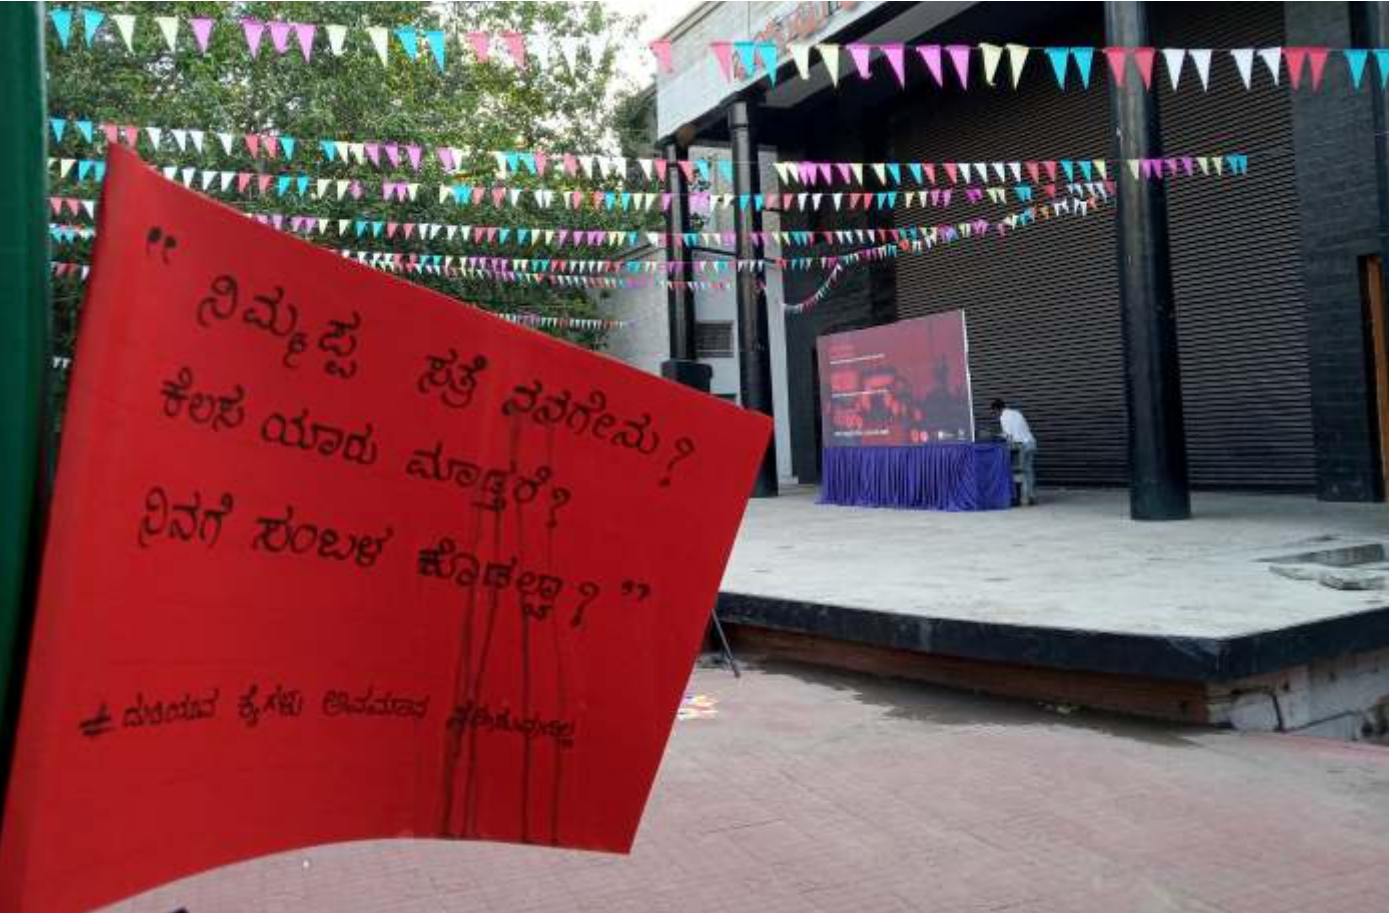 " ನಿಮ್ಮಪ್ಪ ಸತ್ರೆ ನನಗೇನು ?
ಕೆಲಸ ಯಾರು ಮಾಡ್ತಾರೆ ?
ನಿನಗೆ ಸಂಬಳ ಕೊಡಲ್ವಾ ? "
# ದುಡಿಯುವ ಕೈಗಳು ಅವಮಾನ ಸಹಿಸುವುದಿಲ್ಲ